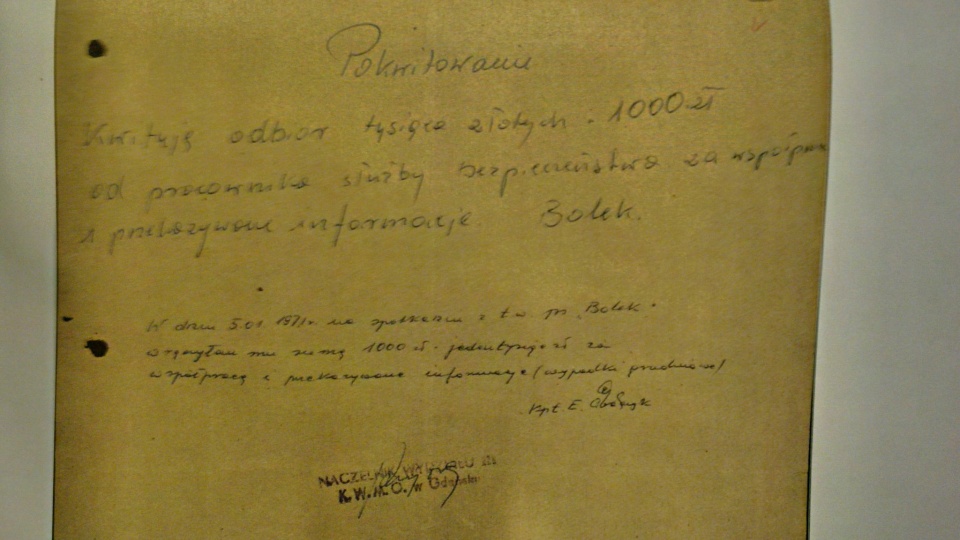 Pokwitowanie
Kwituję odbiór tysiąca złotych . 1000 zł
od pracownika służby bezpieczeństwa za
i przekazywane informacje. Bolek.
W dniu 5.01. 1971r. na spotkaniu z t.w. ps. "Bolek"
wręczyłem mu sumę 1000 zł. jeden tysiąc zł za
współpracę i przekazywane informacje (wypadki grudniowe)
Kpt. E.
NACZELNIK WYDZIAŁU III
K.W.M.O. w Gdańsku